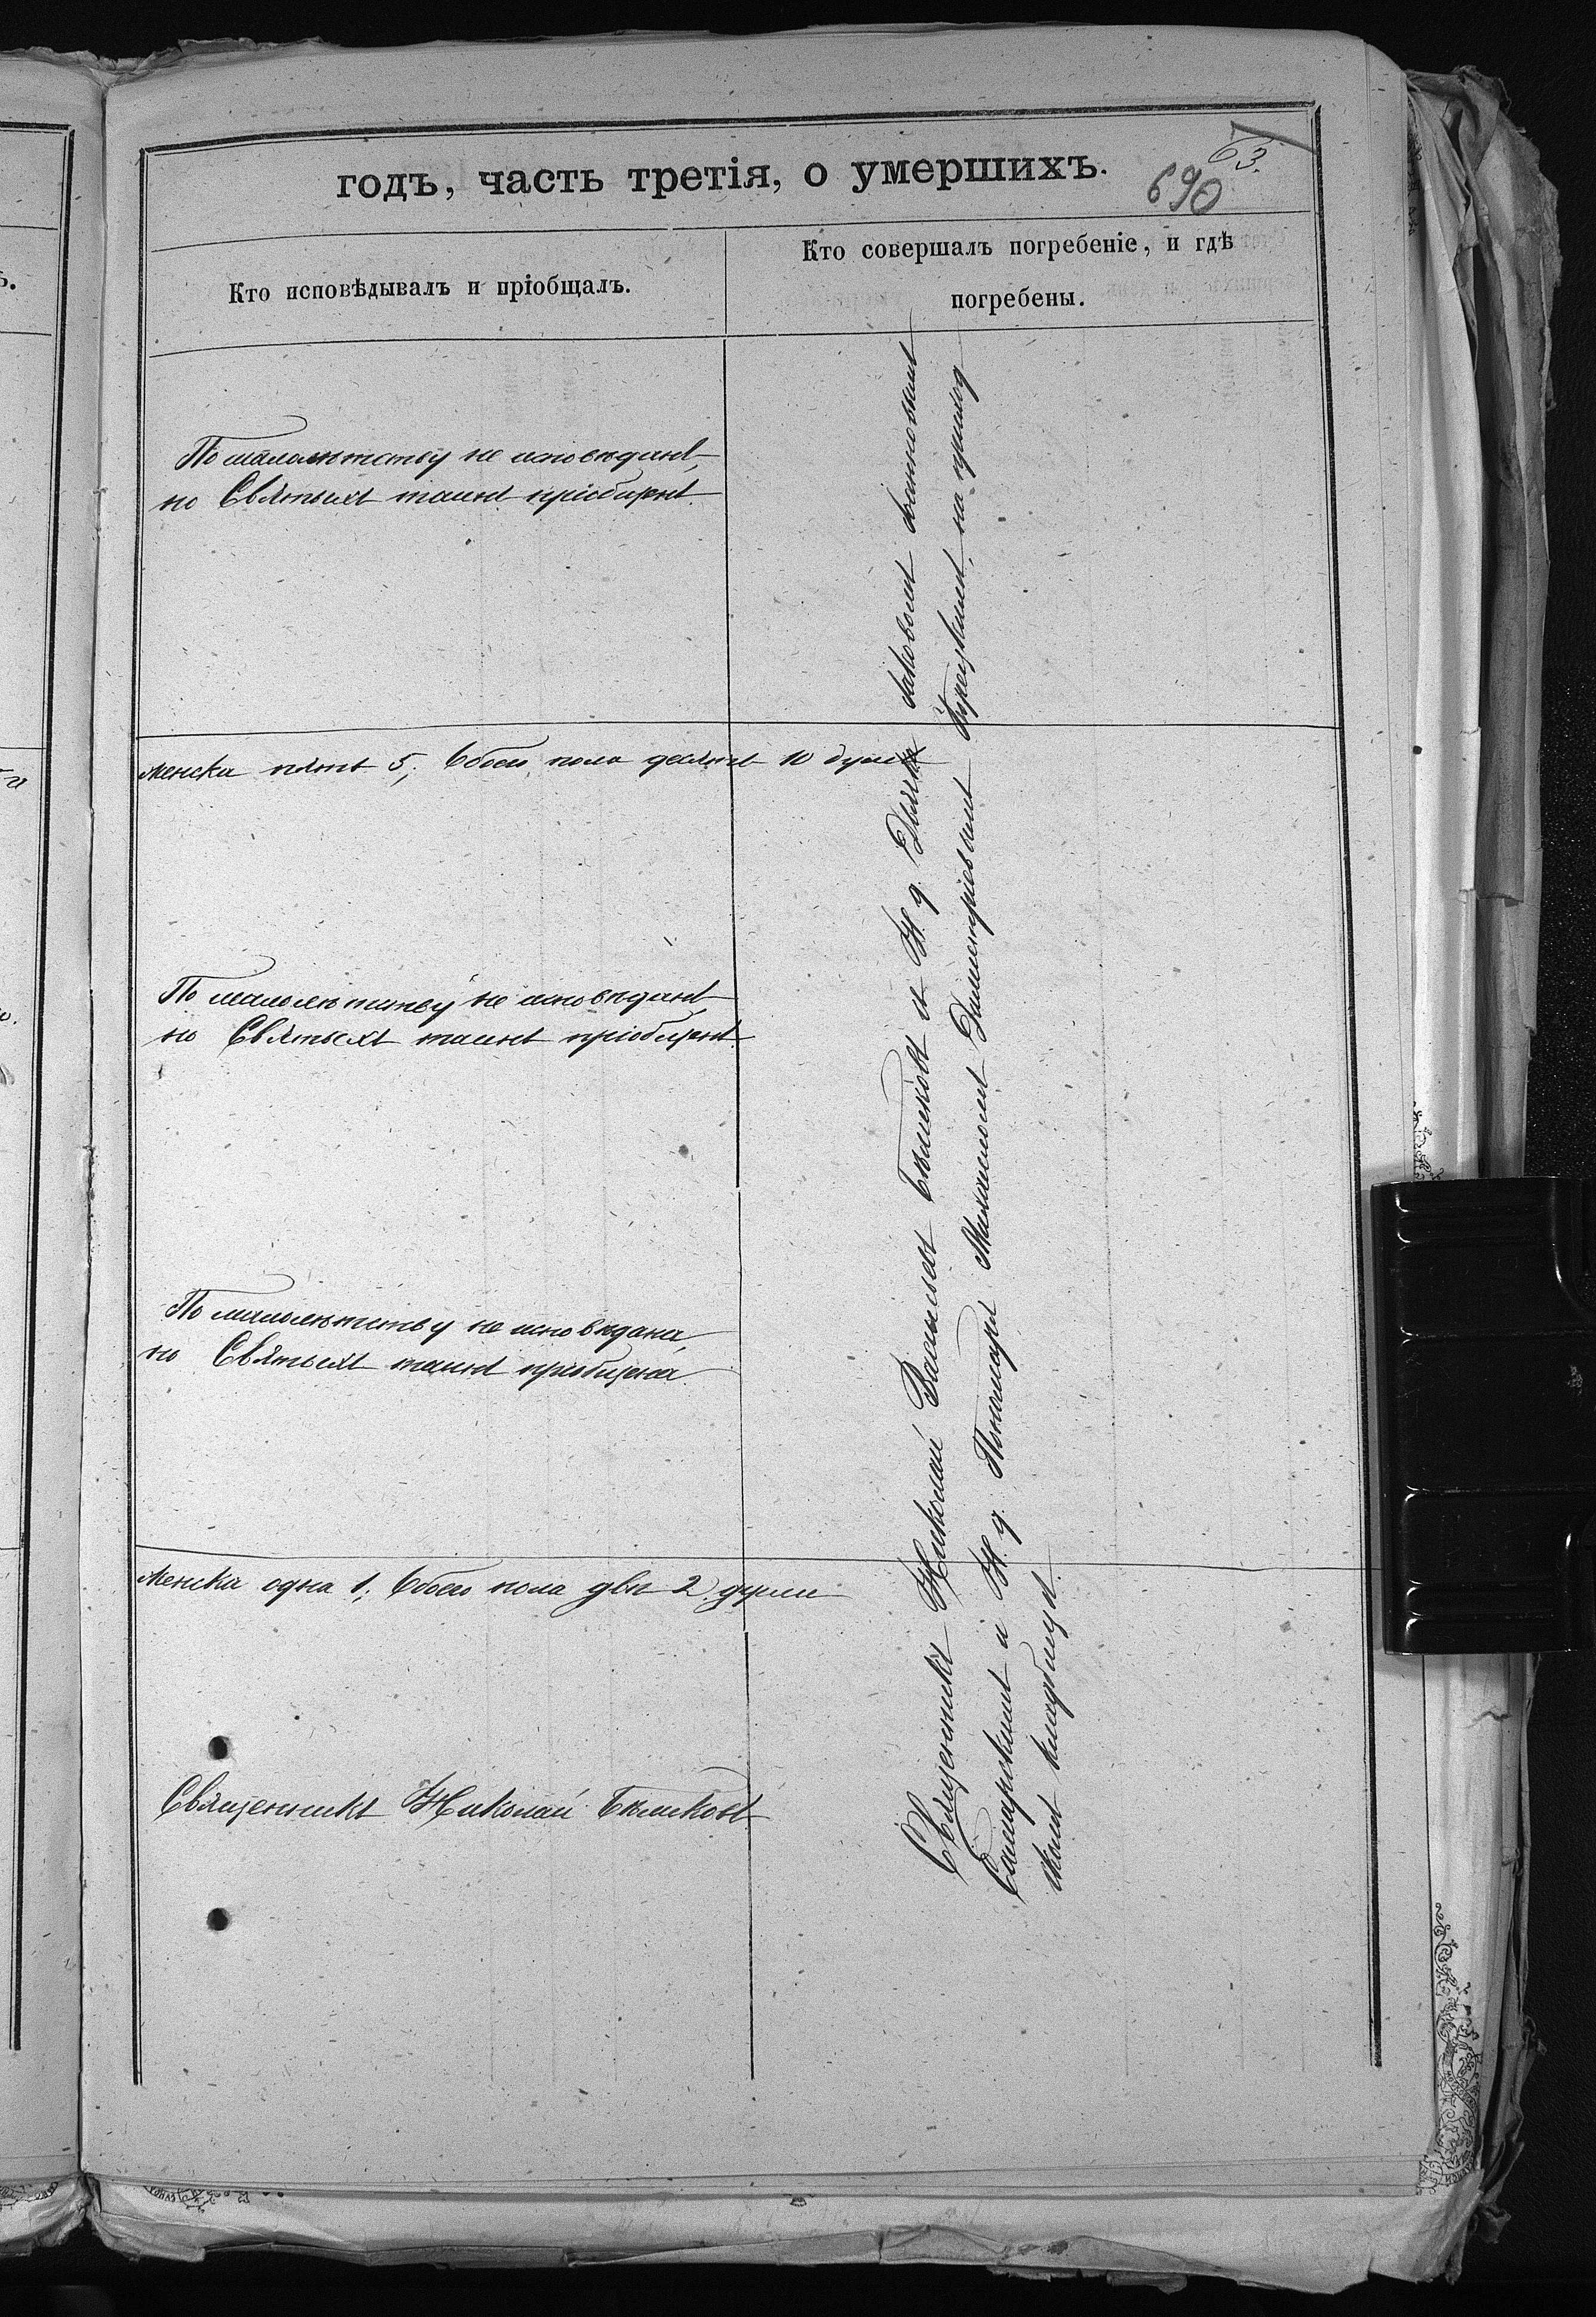 годъ, часть третія, о умершихъ.
63.
690
Кто исповѣдывалъ и пріобщалъ.
Кто совершалъ погребеніе, и гдѣ
погребены.
По малолѣтству не исповѣданъ,
но Святыхъ таинъ пріобщенъ.
Женска пять 5, Обоего пола десять 10 душъ
По малолѣтству не исповѣданъ
но Святыхъ таинъ пріобщенъ.
По малолѣтству не исповѣдана,
но Святыхъ таинъ пріобщена
Женска одна 1; Обоего пола двѣ 2 души
Священникъ Николай Бѣликовъ
Священникъ Николай Васильевъ Бѣликовъ и И. д. Дьячка Іаковомъ Іоанновымъ
Самарскимъ и И. д. Пономаря Михаиломъ Димитріевымъ на приход
скомъ кладбищѣ.